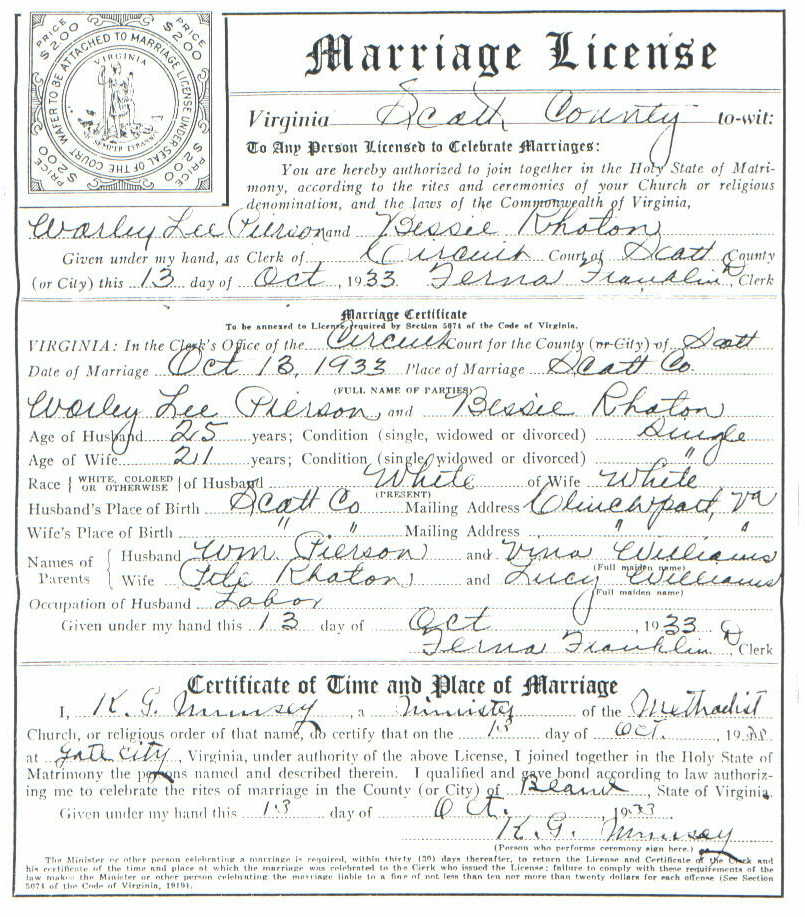 PRICE $2.00
PRICE $2.00
WAFER TO BE ATTACHED TO MARRIAGE LICENSE UNDER SEAL OF THE COURT
VIRGINIA
SEMPER TYRANNIS
PRICE $2.00
PRICE $2.00
Marriage License
Virginia Scott County to-wit:
To Any Person Licensed to Celebrate Marriages:
You are hereby authorized to join together in the Holy State of Matri-
mony, according to the rites and ceremonies of your Church or religious
denomination, and the laws of the Commonwealth of Virginia,
Worley Lee Pierson and Bessie Rhoton
Given under my hand, as Clerk of Circuit Court of Scott County
(or City) this 13 day of Oct, 1933 Ferna Franklin D, Clerk
Marriage Certificate
To be annexed to License, required by Section 5074 of the Code of Virginia.
VIRGINIA: In the Clerk's Office of the Circuit Court for the County (or City) of Scott
Date of Marriage Oct 13, 1933 Place of Marriage Scott Co
(FULL NAME OF PARTIES)
Worley Lee Pierson, and Bessie Rhoton
Age of Husband 25 years; Condition (single, widowed or divorced) Single
Age of Wife 21 years; Condition (single, widowed or divorced) "
Race { WHITE, COLORED OR OTHERWISE } of Husband White of Wife White
(PRESENT)
Husband's Place of Birth Scott Co Mailing Address Clinchport, Va
Wife's Place of Birth " " Mailing Address " "
Names of Parents { Husband Wm Pierson and Vina Williams
(Full maiden name)
Wife Tile Rhoton and Lucy Williams
(Full maiden name)
Occupation of Husband Labor
Given under my hand this 13 day of Oct, 1933
Ferna Franklin D, Clerk
Certificate of Time and Place of Marriage
I, K. G. Munsey, a Minister of the Methodist
Church, or religious order of that name, do certify that on the 13 day of Oct., 1933
at Gate City, Virginia, under authority of the above License, I joined together in the Holy State of
Matrimony the persons named and described therein. I qualified and gave bond according to law authoriz-
ing me to celebrate the rites of marriage in the County (or City) of Bland, State of Virginia.
Given under my hand this 13 day of Oct., 1933
K. G. Munsey
(Person who performs ceremony sign here.)
The Minister or other person celebrating a marriage is required, within thirty (30) days thereafter, to return the License and Certificate of the Clerk and
his certificate of the time and place at which the marriage was celebrated to the Clerk who issued the License; failure to comply with these requirements of the
law makes the Minister or other person celebrating the marriage liable to a fine of not less than ten nor more than twenty dollars for each offense (See Section
5074 of the Code of Virginia, 1919).